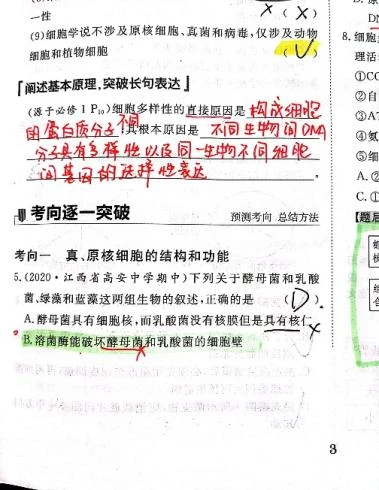 一性
×（×）
(9)细胞学说不涉及原核细胞、真菌和病毒,仅涉及动物
细胞和植物细胞
（√）
「阐述基本原理,突破长句表达」
(源于必修1 P₁₀)细胞多样性的直接原因是 构成细胞
的蛋白质分子不同,其根本原因是 不同生物间DNA
分子具有多样性以及同一生物不同细胞
间基因的选择性表达。
考向逐一突破 预测考向 总结方法
考向一 真、原核细胞的结构和功能
5.(2020·江西省高安中学期中)下列关于酵母菌和乳酸
菌、绿藻和蓝藻这两组生物的叙述,正确的是 （D）.
A.酵母菌具有细胞核,而乳酸菌没有核膜但是具有核仁×
B.溶菌酶能破坏酵母菌和乳酸菌的细胞壁
×
3
8.细胞
理活
①C
②自
③A
④氨
⑤细
A.②
C.①